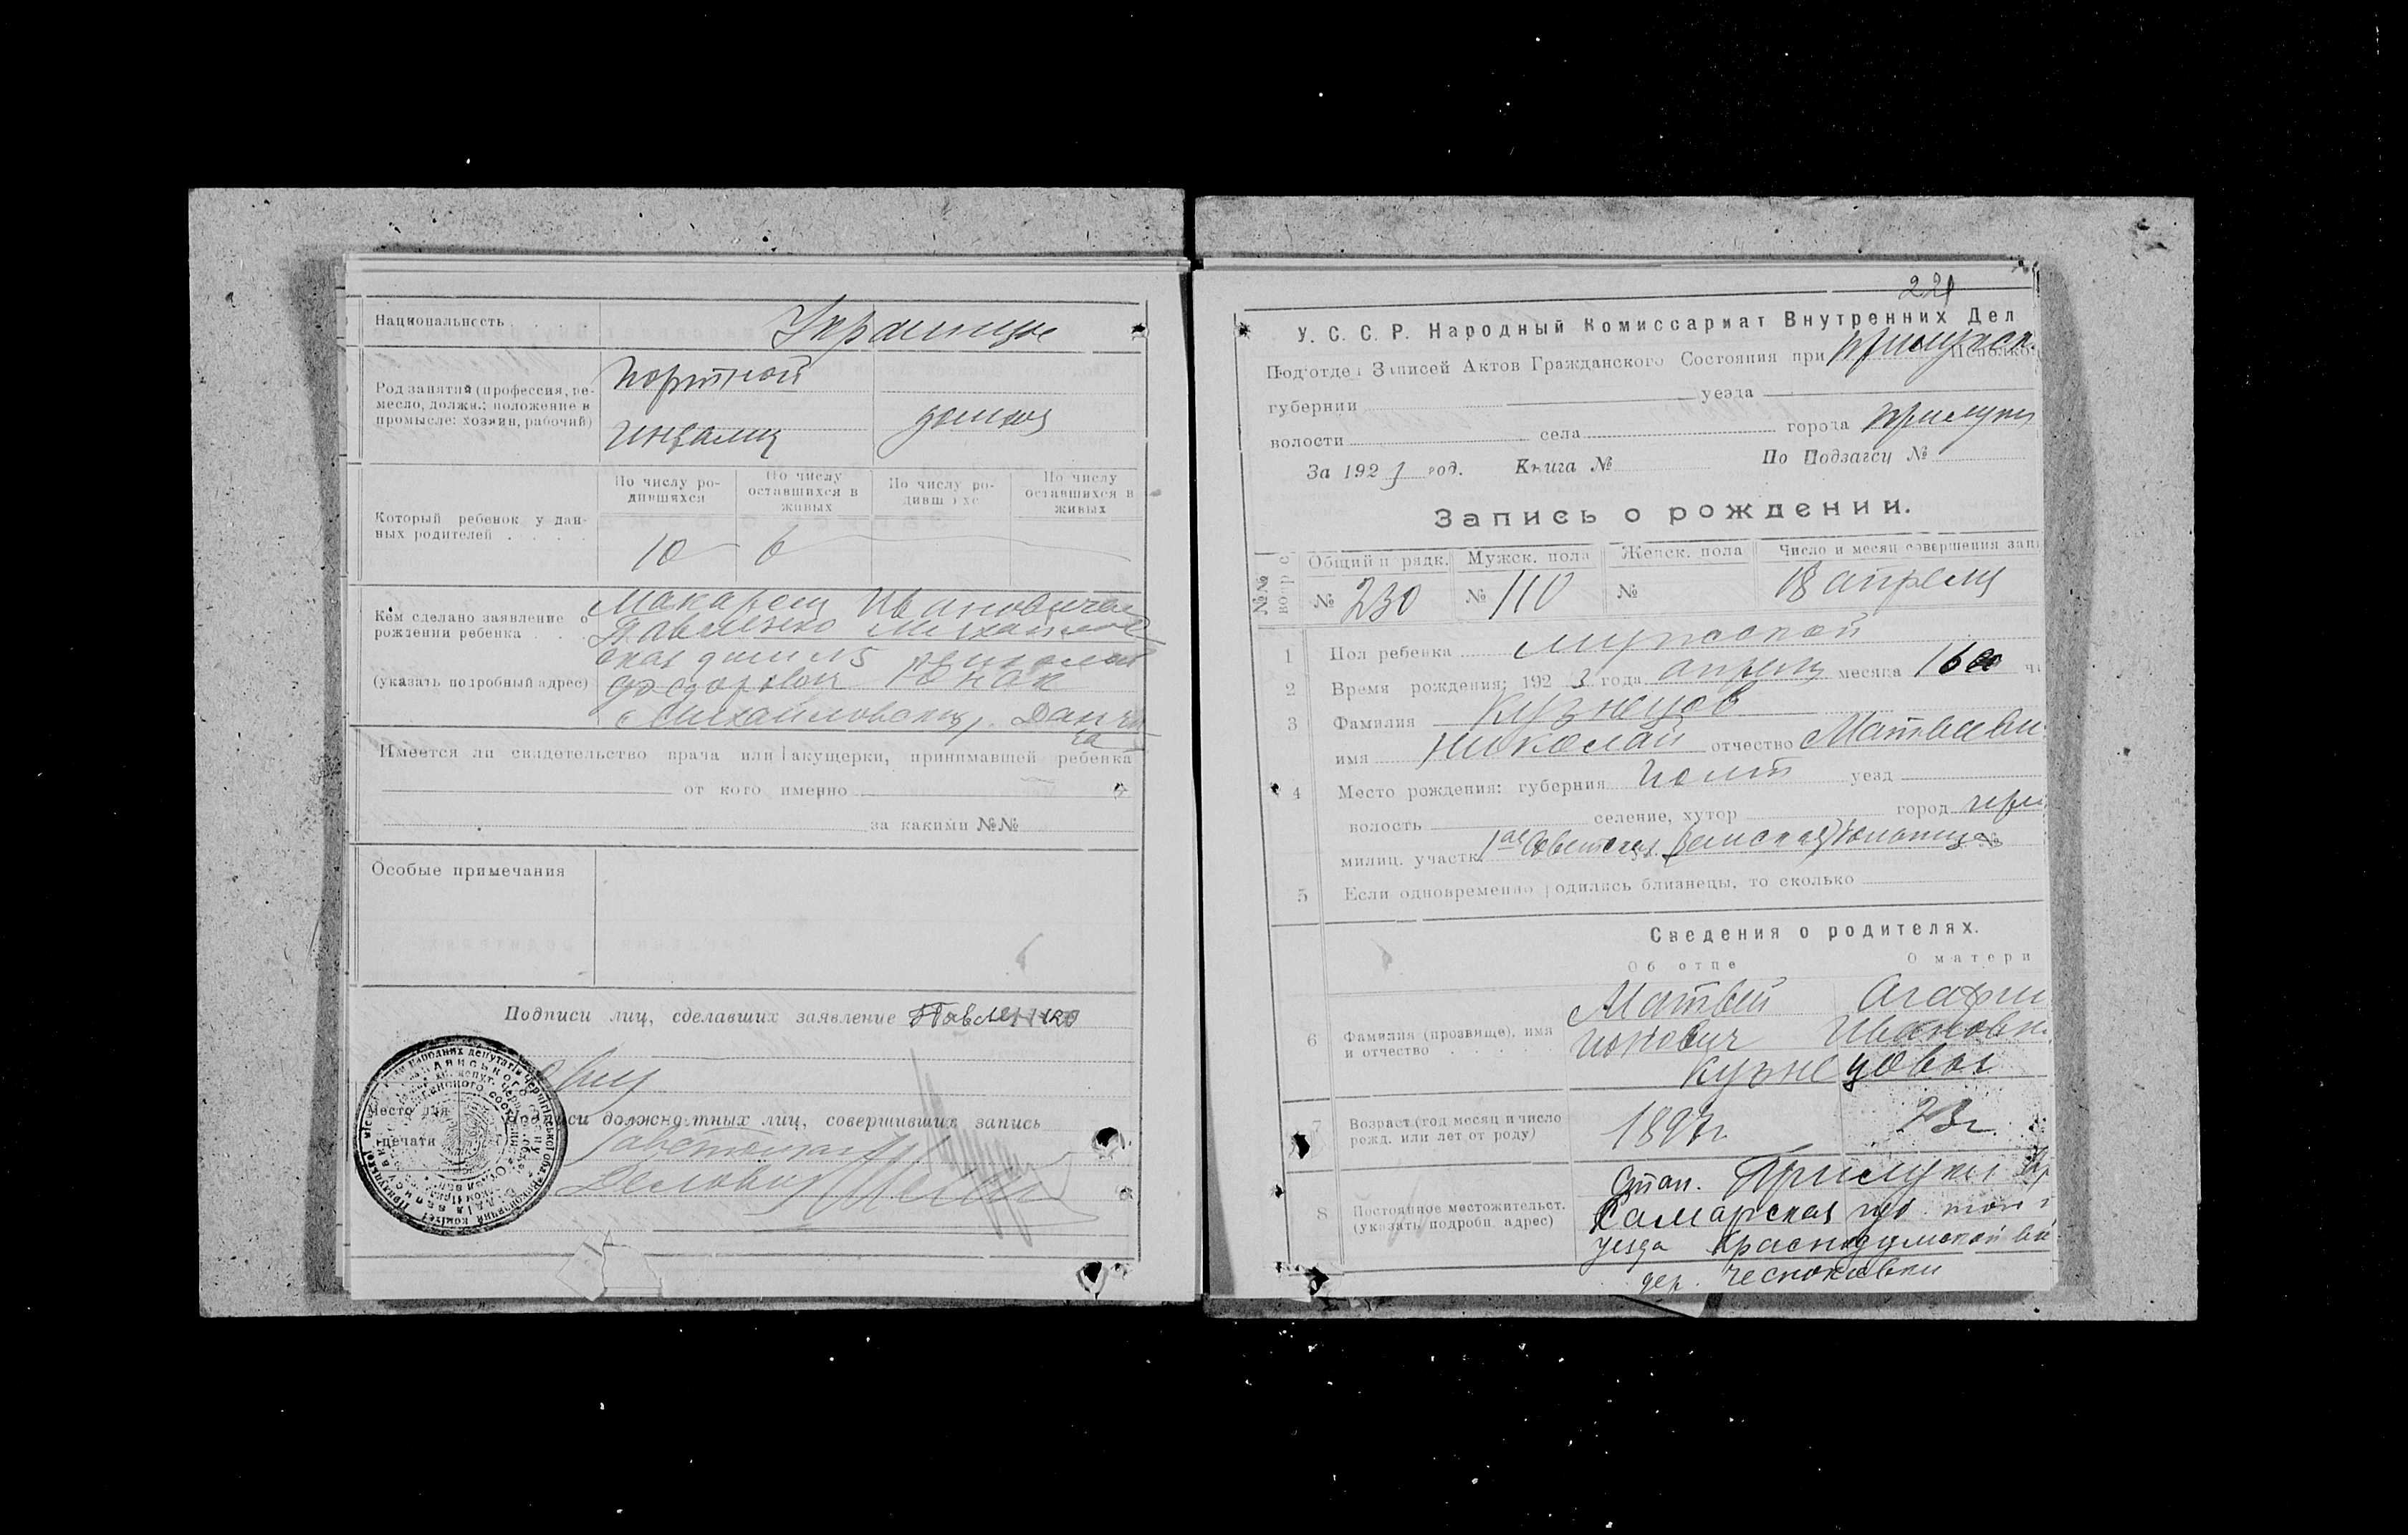 Национальность
Украинцы
Род занятий (профессия, ре-
месло, должн.; положение в
промысле: хозяин, рабочий)
Портной
домхоз
Который ребенок у дан-
ных родителей . . . .
По числу ро-
дившихся
По числу
оставшихся в
живых
По числу ро-
дивш хс
По числу
оставшихся в
живых
10 6
Кем сделано заявление о
рождении ребенка . . .
(указать подробный адрес)
Макарем Ивановичем
Павленко Михайлов
ская дом № 5
Юнак
Михайловская,
Имеется ли свидетельство врача или акушерки, принимавшей ребенка
от кого именно
за какими №№
Особые примечания
Подписи лиц, сделавших заявление Павленко
Место для
печати
си должностных лиц, совершивших запись
Деловод
221
У. С. С. Р. Народный Комиссариат Внутренних Дел
Подотдел Записей Актов Гражданского Состояния при Прилукск. Исполко
губернии уезда
волости села города Прилуки
За 1923 год. Книга № По Подзагсу №
Запись о рождении.
№№
вопрос
Общий п рядк. Мужск. пола Женск. пола Число и месяц совершения запи
№ 230 № 110 № 18 апреля
1 Пол ребенка мужской
2 Время рождения: 1923 года апреля месяца 16 чи
3 Фамилия Кузнецов
имя Николай отчество Матвееви
4 Место рождения: губерния Полт уезд
волость селение, хутор город При
милиц. участк. 1ая Советская (Земская) больница №
5 Если одновременно родились близнецы, то сколько
Сведения о родителях.
Об отце О матери
6 Фамилия (прозвище), имя
и отчество . . . . .
Матвей Агафи
Ионович Ивановн
Кузнецовы
7 Возраст (год месяц и число
рожд. или лет от роду)
1897г. 23г.
8 Постоянное местожительст.
(указать подробн. адрес)
Стан. Прилуки
Самарская губ. того
уезда вол
дер. Чесноковки